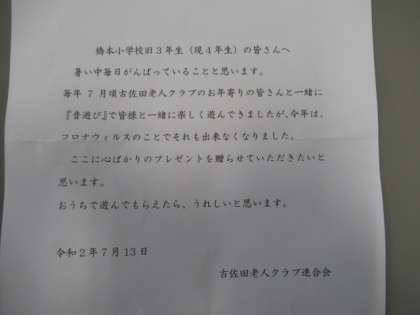 橋本小学校旧３年生（現４年生）の皆さんへ
暑い中毎日がんばっていることと思います。
毎年 ７月頃古佐田老人クラブのお年寄りの皆さんと一緒に
『昔遊び』で皆様と一緒に楽しく遊んできましたが、今年は、
コロナウィルスのことでそれも出来なくなりました。
ここに心ばかりのプレゼントを贈らせていただきたいと
思います。
おうちで遊んでもらえたら、うれしいと思います。
令和２年７月13日
古佐田老人クラブ連合会